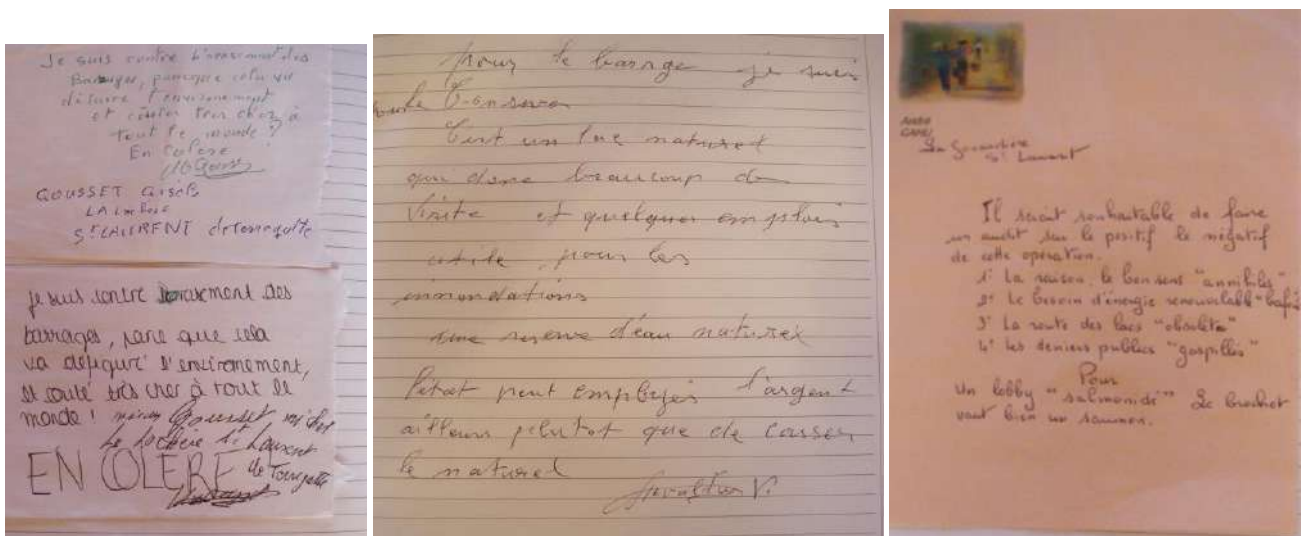 Je suis contre l'arasement des
Barrages, parceque cela va
définire l'environement
et couter tres cher à
tout le monde ?
En Colère
GOUSSET Gisele
LA
St LAURENT de terregatte
je suis contre arasement des
barrages, parc que cela
va défiguré l'environement,
et couté très cher à tout le
monde !
Gousset michel
Le St Laurent
de Terregatte
EN COLERE
pour le barrage je suis
pour le Conserver
C'est un lac naturel
qui done beaucoup de
Visite et quelques emplois
utile pour les
innondations
une reserve d'eau naturel
l'etat peut employer l'argent
ailleurs plutot que de casser
le naturel
V.
St Laurent
Il serait souhaitable de faire
un audit sur le positif le négatif
de cette opération.
1° La raison, le bon sens "annihilés"
2° Le besoin d'énergie renouvelable
3° La route des lacs "obsolète"
4° Les deniers publics "gaspillés"
Pour
Un lobby "salmonidé" Le brochet
vaut bien un saumon.